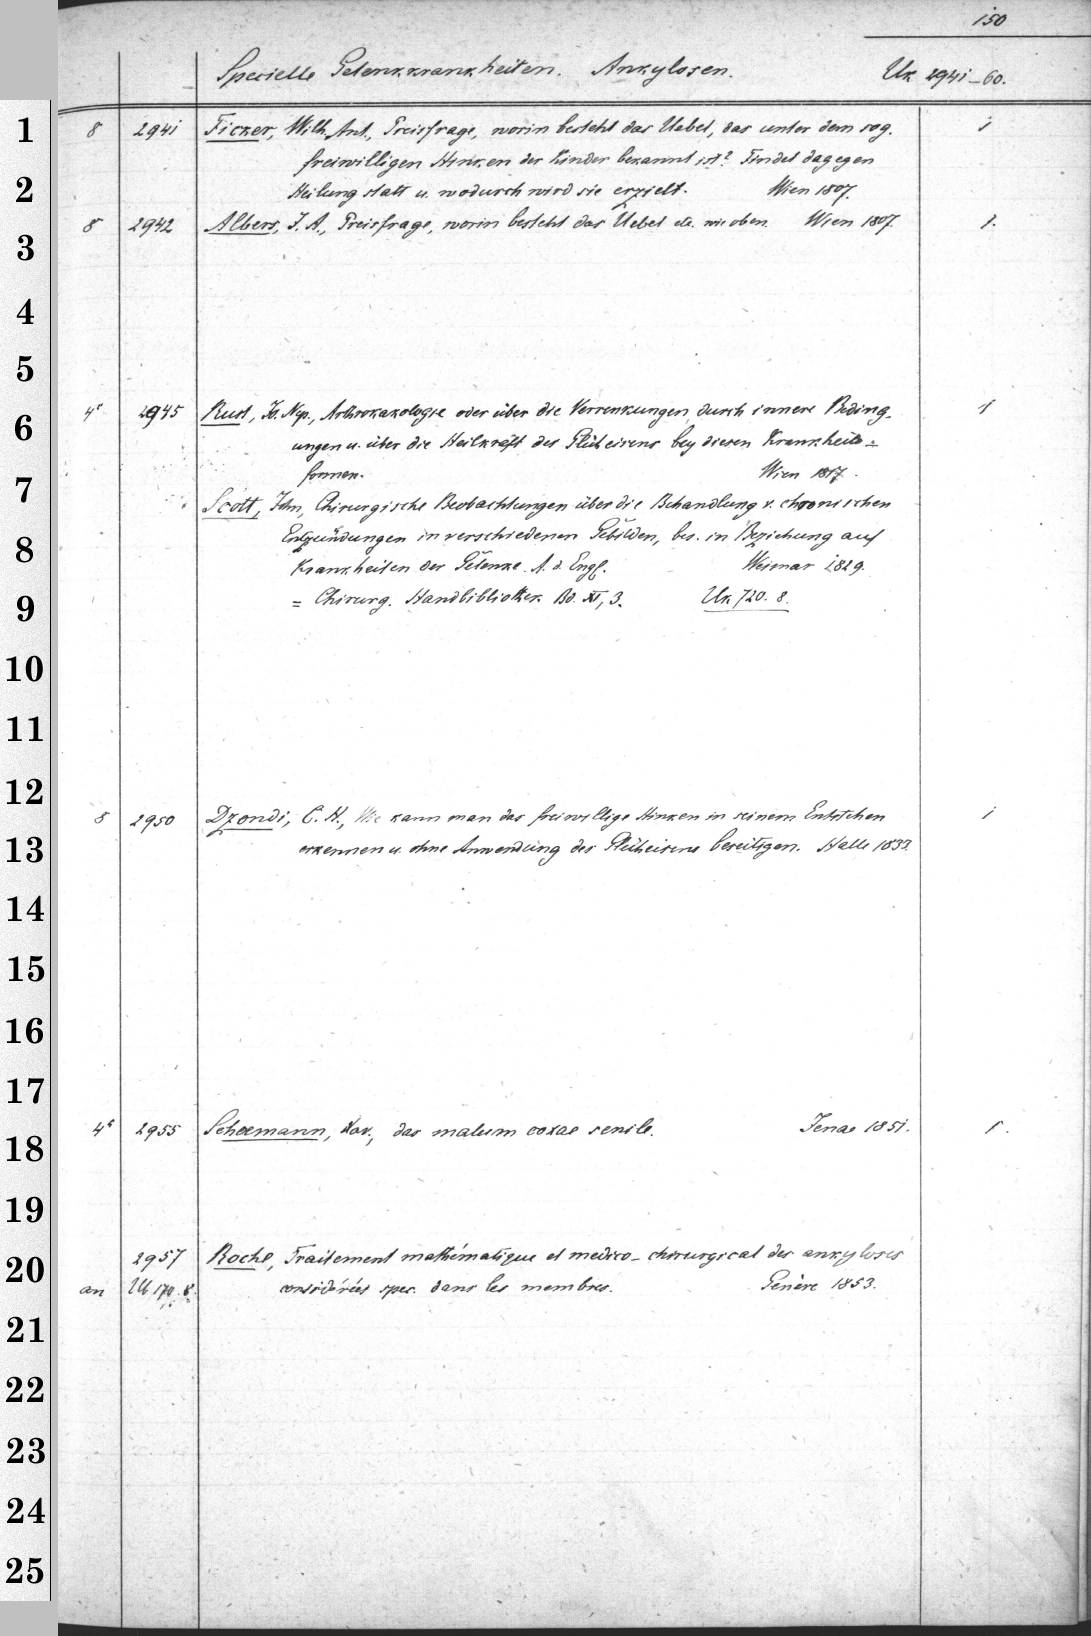 150
Specielle Gelenkkrankheiten. Ankylosen. Uk 2941-60.
1
8 2941 Ficker, Wilh. Ant., Preisfrage, worin besteht das Uebel, das unter dem sog. 1
freiwilligen Hinken der Kinder bekannt ist? Findet dagegen
2
Heilung statt u. wodurch wird sie erzielt. Wien 1807.
8 2942 Albers, J. A., Preisfrage, worin besteht das Uebel etc. wie oben. Wien 1807. 1.
3
4
5
4° 2945 Rust, Jo. Nep., Arthrokakologie oder über die Verrenkungen durch innere Beding- 1
6
ungen u. über die Heilkraft des Glüheisens bey diesen Krankheits-
formen. Wien 1817.
7
Scott, John, Chirurgische Beobachtungen über die Behandlung v. chronischen
Entzündungen in verschiedenen Gebilden, bes. in Beziehung auf
8
Krankheiten der Gelenke. A. d. Engl. Weimar 1829.
= Chirurg. Handbibliothek. Bd. XI, 3. Uk 720. 8.
9
10
11
12
8 2950 Dzondi, C. H., Wie kann man das freiwillige Hinken in seinem Entstehen 1
erkennen u. ohne Anwendung des Glüheisens beseitigen. Halle 1833.
13
14
15
16
17
4° 2955 Schoemann, Xav., das malum coxae senile. Jenae 1851. 1.
18
19
2957 Roche, Traitement mathématique et medico-chirurgical des ankyloses
20
an Ub 170. 8. considérées spec. dans les membres. Genève 1853.
21
22
23
24
25